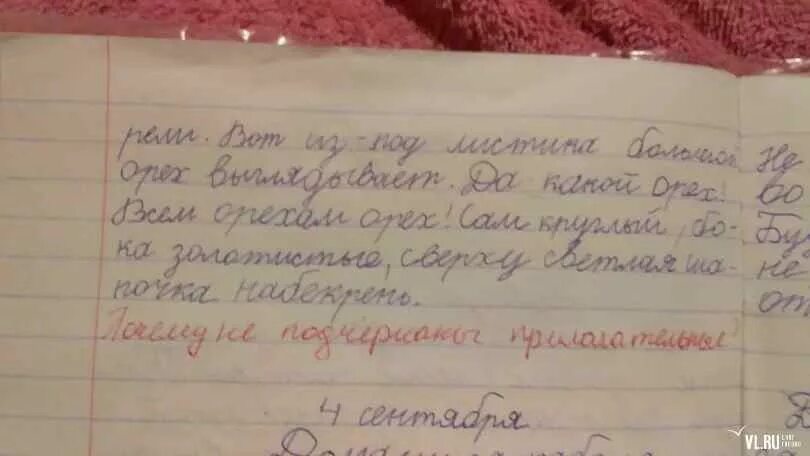 рели. Вот из-под листика большой
орех выглядывает. Да какой орех!
Всем орехам орех! Сам круглый, бо-
ка золотистые, сверху светлая ша-
почка набекрень.
Почему не подчерканы прилагательные
4 сентября
Не
во
Буд
не
от
VL.RU